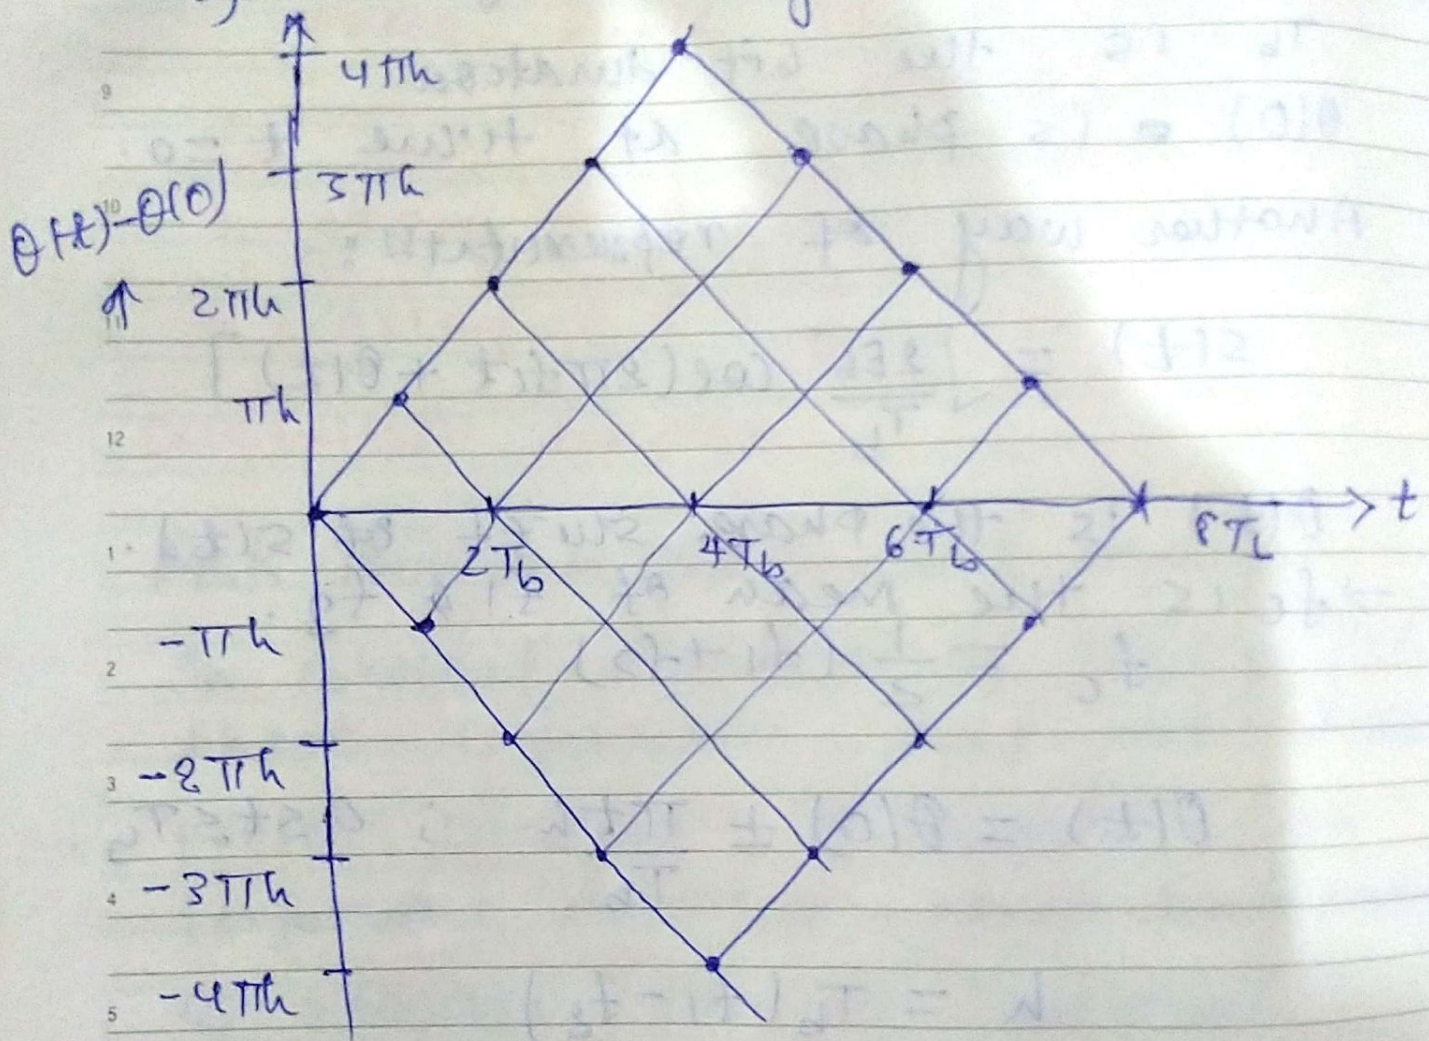 4πh
3πh
θ(t)-θ(0)
2πh
πh
t
2Tb
4Tb
6Tb
8Tb
-πh
-2πh
-3πh
-4πh
9
10
11
12
1
2
3
4
5